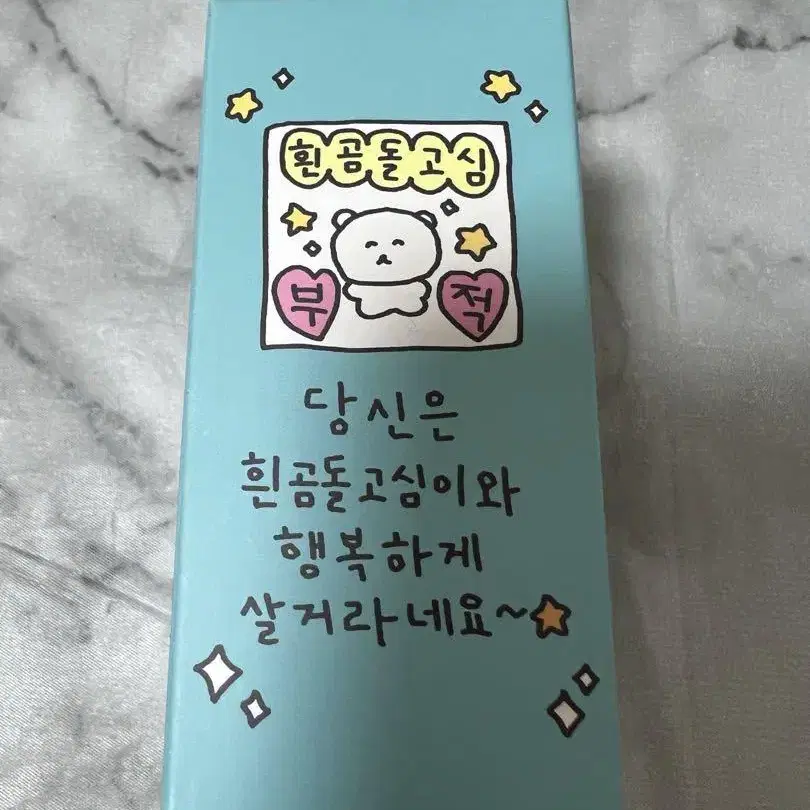 흰곰돌고심
부 적
당신은
흰곰돌고심이와
행복하게
살거라네요~